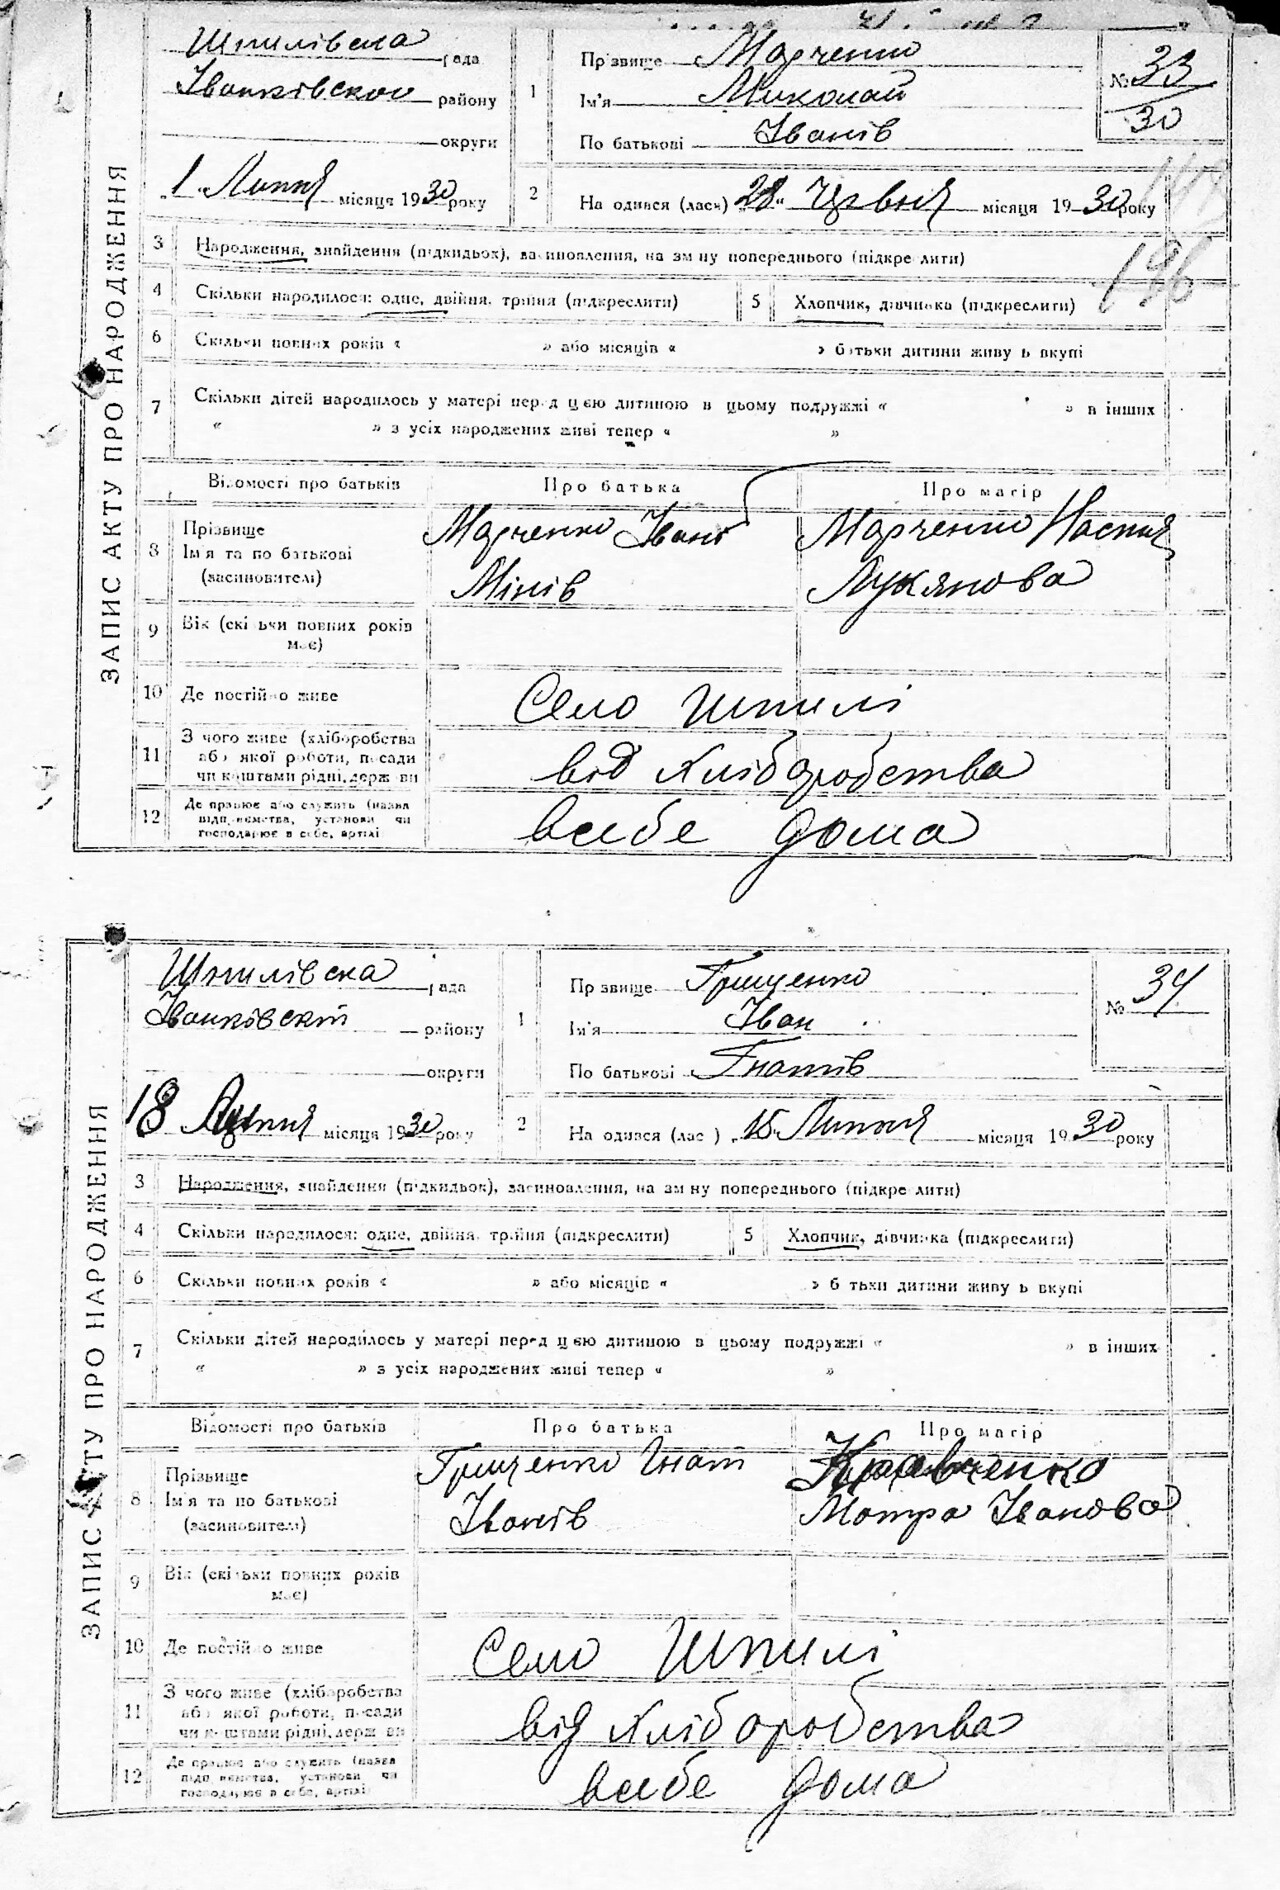 ЗАПИС АКТУ ПРО НАРОДЖЕННЯ
Шпилівска рада
Іванківскои району
округи
1 Липня місяця 1930 року
1
Прізвище Марченко
Ім'я Миколай
По батькові Іванів
№ 33
30
2
На одився (лась) „28“ Червня місяця 1930 року
196
3 Народження, знайдення (підкидьок), засиновлення, на зм ну попереднього (підкре лити)
4 Скільки народилося: одне, двійня, тройня (підкреслити) 5 Хлопчик, дівчинка (підкреслити)
6 Скільки повних років « » або місяців « » батьки дитини живу ь вкупі
7 Скільки дітей народилось у матері перед цією дитиною в цьому подружжі « » в інших
« » з усіх народжених живі тепер « »
Відомості про батьків Про батька Про матір
8 Прізвище
Ім'я та по батькові
(засиновителі)
Марченко Іван
Мінів
Марченко Настя
Лукянова
9 Вік (скільки повних років має)
10 Де постійно живе Село Шпилі
11 З чого живе (хліборобства
або якої роботи, посади
чи коштами рідні, держ ви
від хліборобства
12 Де працює або служить (назва
підприємства, установи чи
господарює в себе, артілі
всебе дома
ЗАПИС АКТУ ПРО НАРОДЖЕННЯ
Шпилівска рада
Іванківскт району
округи
18 Липня місяця 1930 року
1
Пр звище Грищенко
Ім'я Іван
По батькові Гнатів
№ 34
2
На одився (лас ) „15 Липня місяця 1930 року
3 Народження, знайдення (підкидьок), засиновлення, на зм ну попереднього (підкре лити)
4 Скільки народилося: одне, двійня, тройня (підкреслити) 5 Хлопчик, дівчинка (підкреслити)
6 Скільки повних років « » або місяців « » б тьки дитини живу ь вкупі
7 Скільки дітей народилось у матері перед цією дитиною в цьому подружжі « » в інших
« » з усіх народжених живі тепер « »
Відомості про батьків Про батька Про матір
8 Прізвище
Ім'я та по батькові
(засиновителі)
Грищенко Гнат
Іванів
Кравченко
Мотра Іванова
9 Вік (скільки повних років має)
10 Де постійно живе Село Шпилі
11 З чого живе (хліборобства
або якої роботи, посади
чи коштами рідні, держ ви
від хліборобства
12 Де працює або служить (назва
підприємства, установи чи
господарює в себе, артілі
всебе дома